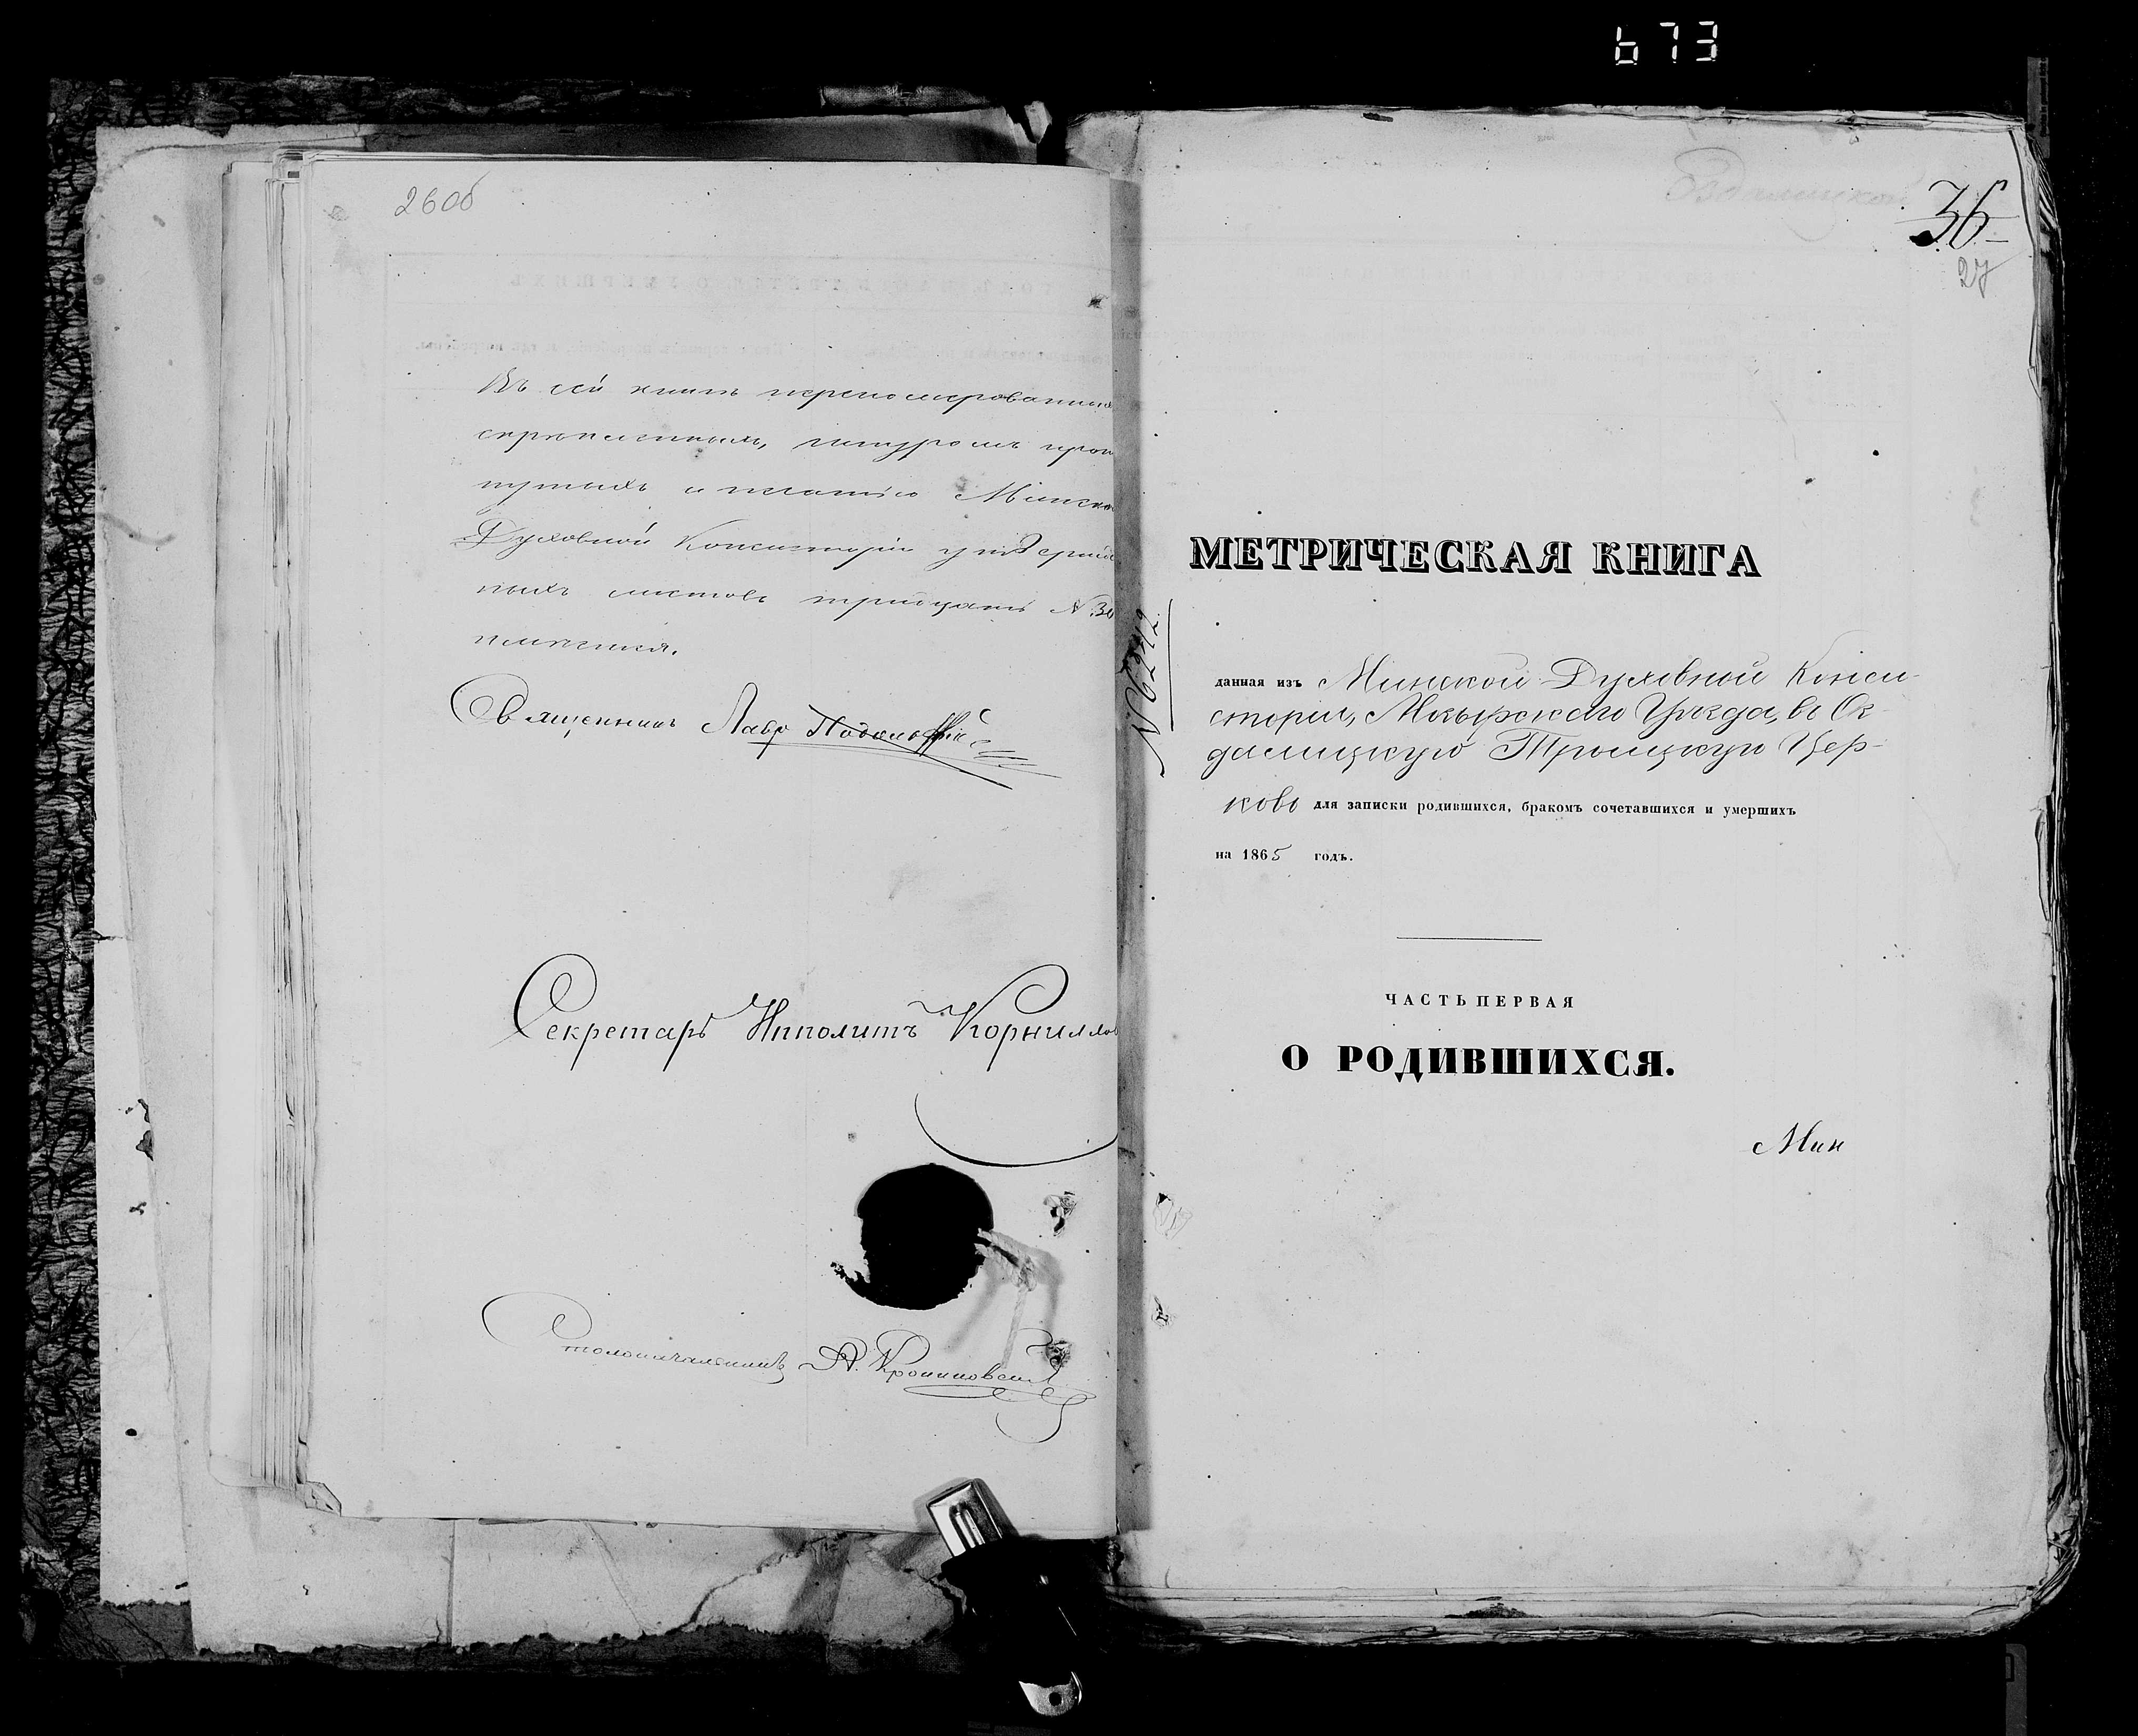 673
260б
Въ сей книгѣ перенумерованныхъ
скрѣпленныхъ, шнуромъ
и печатію Минской
Духовной Консисторіи утвержден
ныхъ листовъ тридцать N 30
Священникъ Лавр
Секретарь Ипполитъ Корниллов
Столоначальникъ А.
36
27
МЕТРИЧЕСКАЯ КНИГА
N 6242
данная изъ Минской Духовной Конси-
сторіи, Мозырскаго Уѣзда, въ Ог
далицкую Троицкую Цер-
ковь для записки родившихся, бракомъ сочетавшихся и умершихъ
на 1865 годъ.
ЧАСТЬ ПЕРВАЯ
О РОДИВШИХСЯ.
Мин